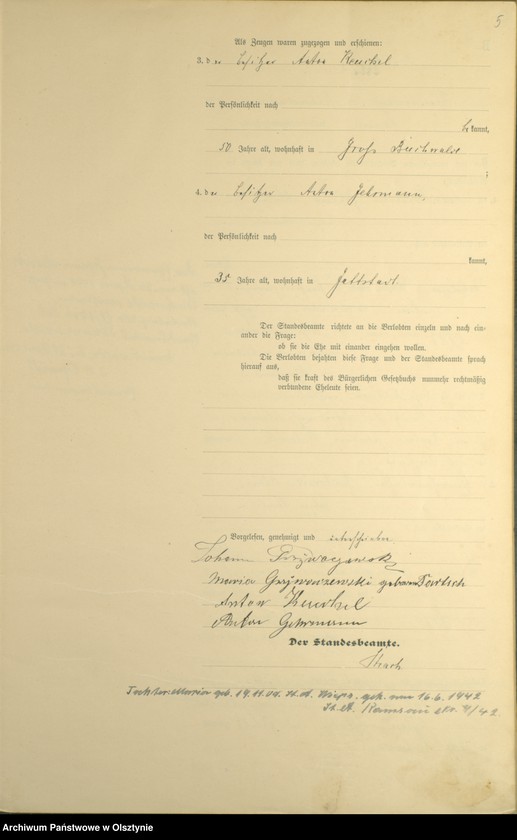 5
Als Zeugen waren zugezogen und erschienen:
3. der Besitzer Anton Keuchel
der Persönlichkeit nach
bekannt,
50 Jahre alt, wohnhaft in Groß Buchwalde
;
4. der Besitzer Anton Gehrmann,
der Persönlichkeit nach
kannt,
35 Jahre alt, wohnhaft in
Der Standesbeamte richtete an die Verlobten einzeln und nach ein-
ander die Frage:
ob sie die Ehe mit einander eingehen wollen.
Die Verlobten bejahten diese Frage und der Standesbeamte sprach
hierauf aus,
daß sie kraft des Bürgerlichen Gesetzbuchs nunmehr rechtmäßig
verbundene Eheleute seien.
Vorgelesen, genehmigt und unterschrieben
Johann
Maria geborne
Anton Keuchel
Anton Gehrmann
Der Standesbeamte.
Tochter Maria geb. geh. am 16.6.1942
St. A. Nr. 4/42
Archiwum Państwowe w Olsztynie